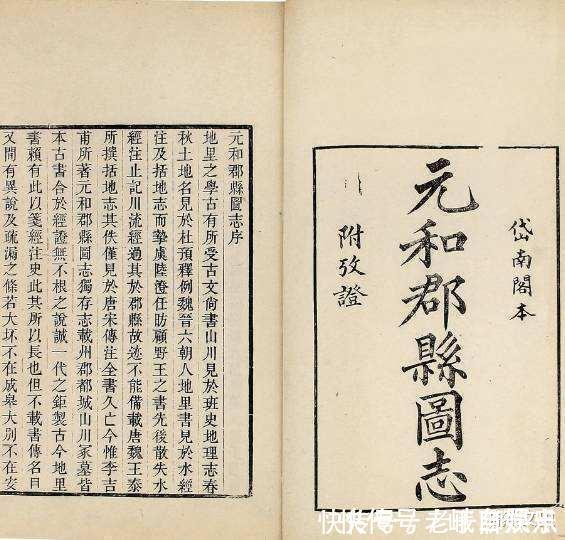 岱南閣本
元和郡縣圖志
附攷證
元和郡縣圖志序
地里之學古有所受古文尙書山川見於班史地理志春
秋土地名見於杜預釋例魏晉六朝人地里書見於水經
注及括地志而摯虞陸澄任昉顧野王之書先後散失水
經注止記川流經過其於郡縣故迹不能備載唐魏王泰
所撰括地志其佚僅見於唐宋傳注全書久亡今惟李吉
甫所著元和郡縣圖志獨存志載州郡都城山川冢墓皆
本古書合於經證無不根之說誠一代之鉅製古今地里
書賴有此以箋經注史此其所以長也但不載書傳名目
又間有異說及疏漏之條若大坯不在成皋大別不在安
快传号